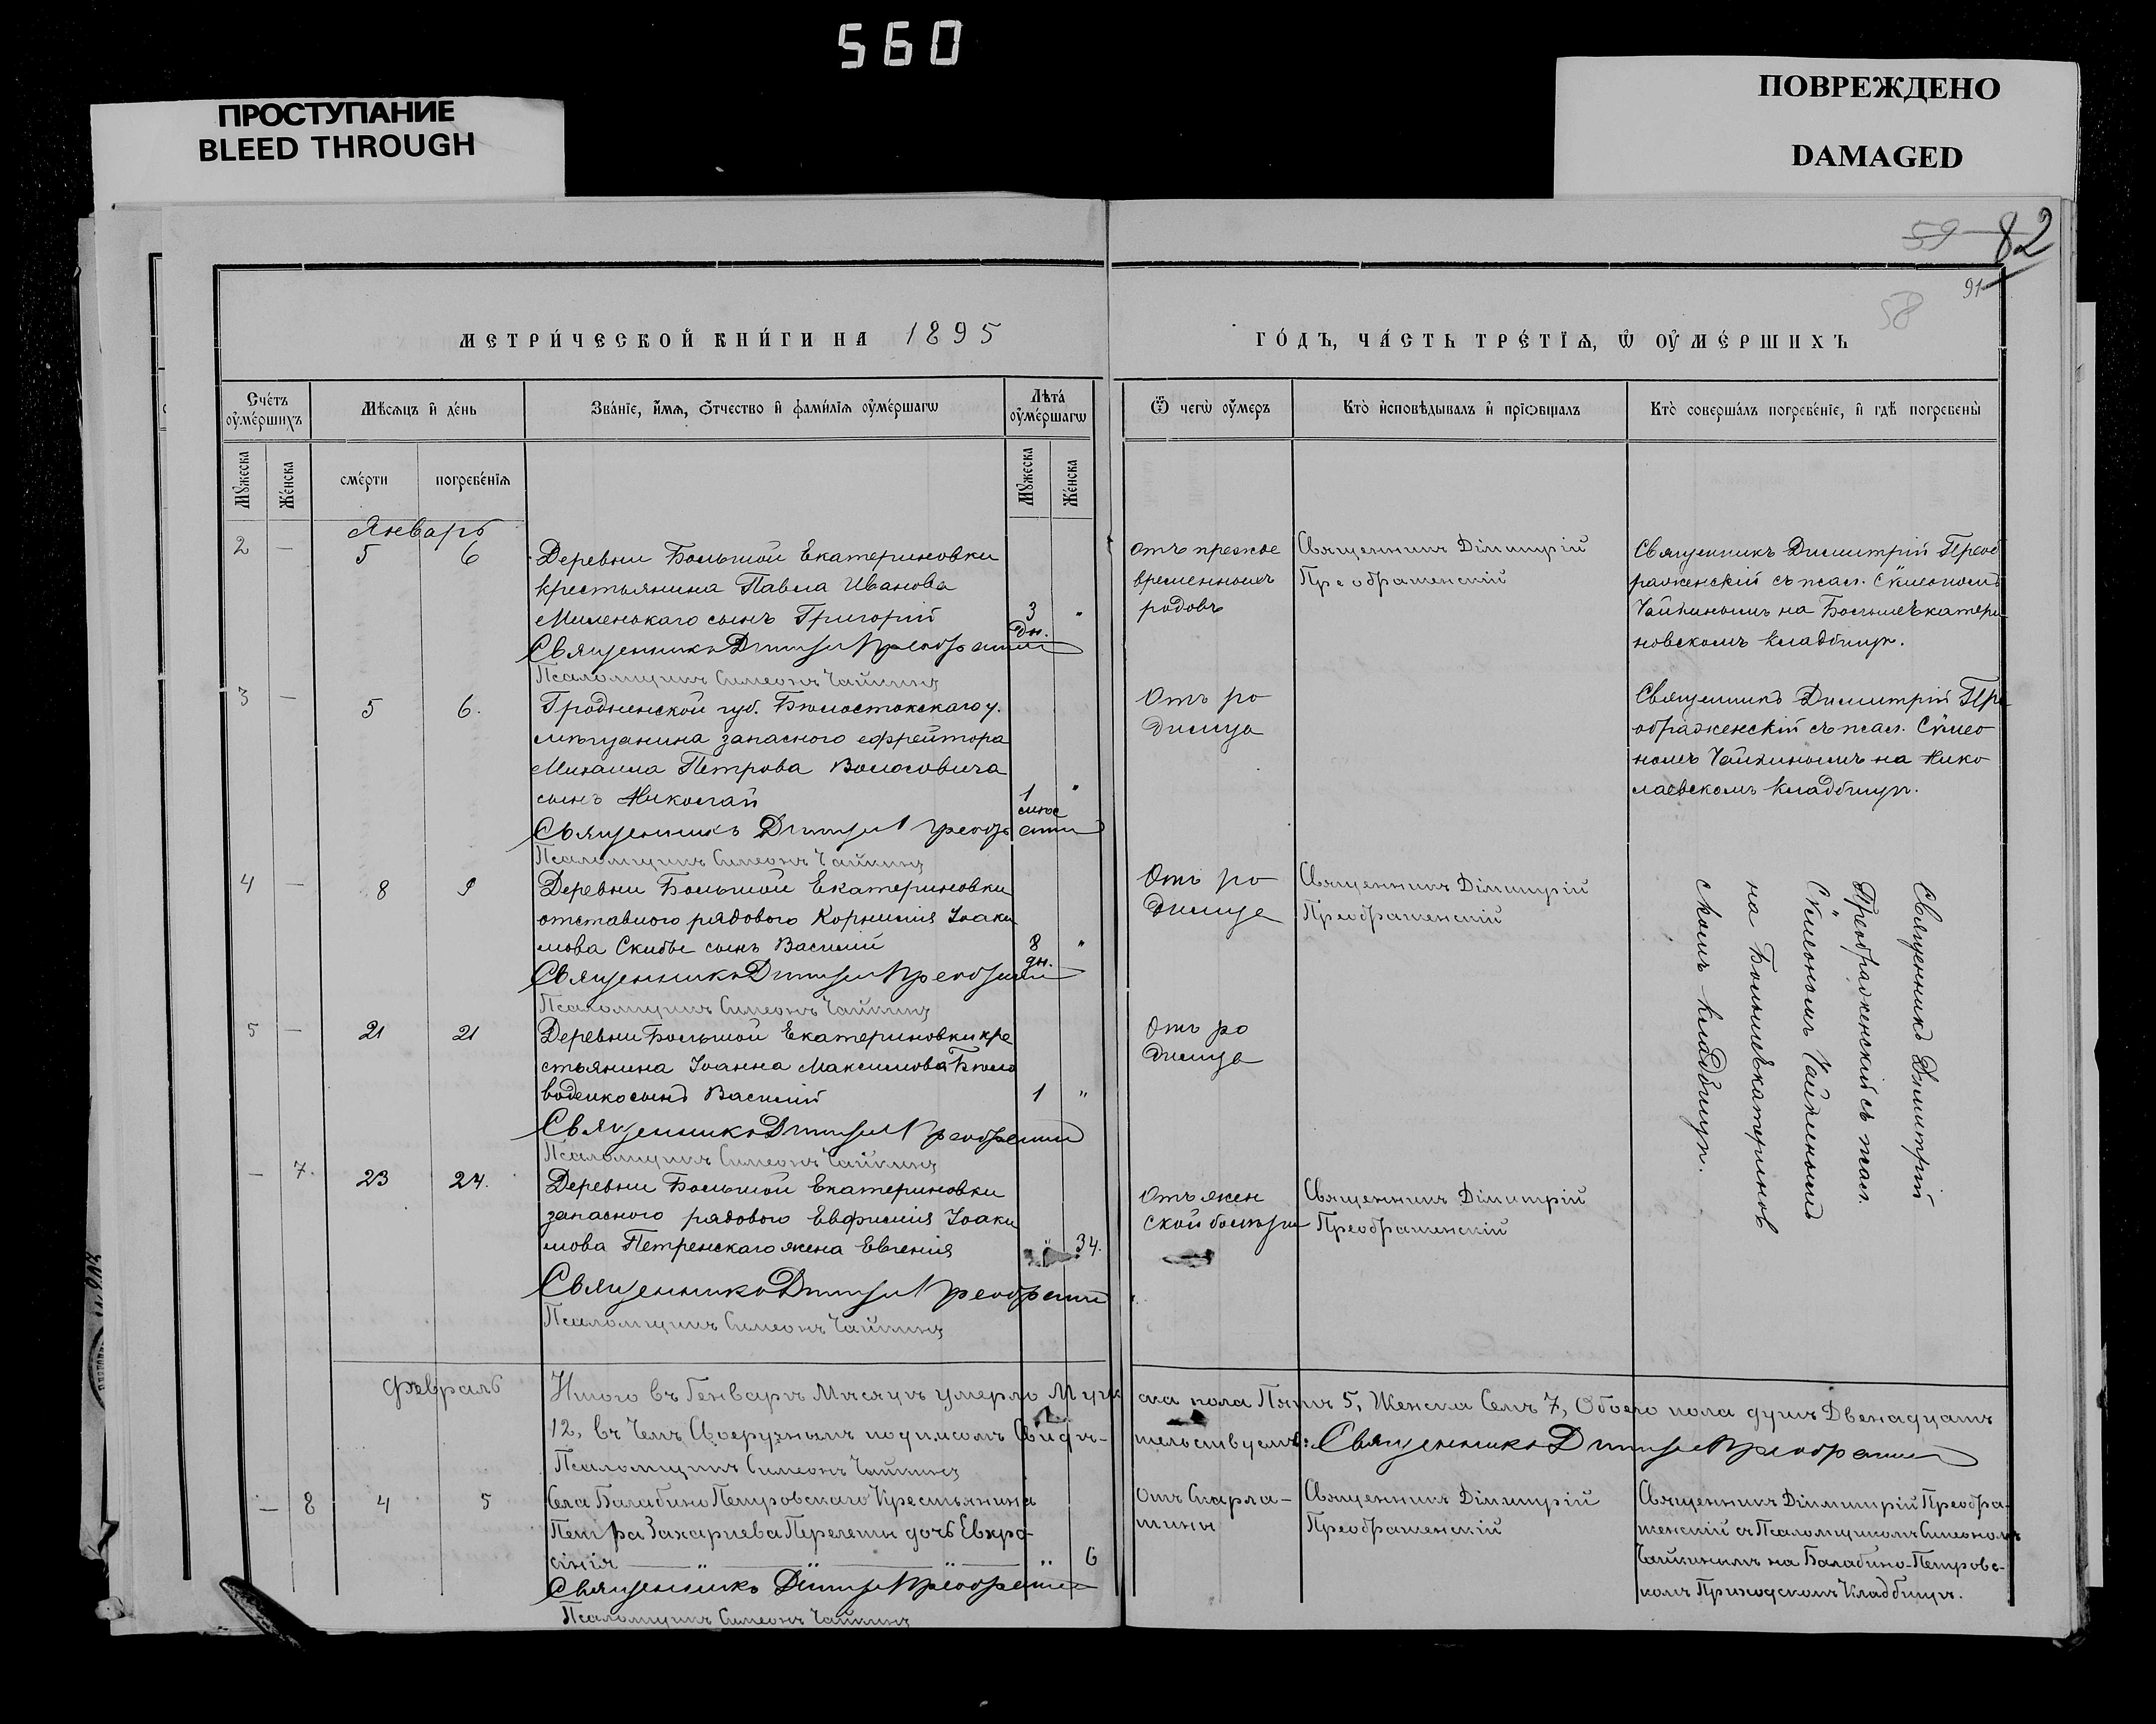 560
ПРОСТУПАНИЕ
BLEED THROUGH
ПОВРЕЖДЕНО
DAMAGED
59 82
91
58
МЕТРИ́ЧЕСКОЙ КНИ́ГИ НА 1895
ГО́ДЪ, ЧА́СТЬ ТРЕ́ТЇѦ, Ѡ҆ ОУ҆МЕ́РШИХЪ
Сче́тъ оу҆ме́ршихъ
Мѣ́сѧцъ и҆ де́нь
Зва́нїе, и҆́мѧ, ѻ҆́тчество и҆ фами́лїѧ оу҆ме́ршагѡ
Лѣта́ оу҆ме́ршагѡ
Ѿ чегѡ̀ оу҆́меръ
Кто̀ и҆сповѣ́дывалъ и҆ прїѻбща́лъ
Кто̀ соверша́лъ погребе́нїе, и҆ гдѣ̀ погребены̀
Мꙋ́жеска
Же́нска
сме́рти
погребе́нїѧ
Мꙋ́жеска
Же́нска
Январь
2 — 5 6
Деревни Большой Екатериновки
крестьянина Павла Иванова
Миленькаго сынъ Григорій
3 дн. "
Священникъ Димитрій Преображенскій
Псаломщикъ Симеонъ Чайкинъ
отъ прежде
временныхъ
родовъ
Священникъ Димитрій
Преображенскій
Священникъ Димитрій Преоб
раженскій съ псал. Сѵмеономъ
Чайкинымъ на БольшеЕкатери
новскомъ кладбищѣ.
3 — 5 6.
Гродненской губ. Бѣлостокскаго у.
мѣщанина запаснаго ефрейтора
Михаила Петрова Волосовича
сынъ Николай
1 "
Священникъ Димитрій Преображенскій
Псаломщикъ Симеонъ Чайкинъ
Отъ ро
димца
Священникъ Димитрій Пре
ображенскій съ псал. Сѵмео
номъ Чайкинымъ на Нико
лаевскомъ кладбищѣ.
4 — 8 9
Деревни Большой Екатериновки
отставного рядового Корнилія Іоаки
мова Скибы сынъ Василій
8 дн. "
Священникъ Димитрій Преображенскій
Псаломщикъ Симеонъ Чайкинъ
Отъ ро
димца
Священникъ Димитрій
Преображенскій
Священникъ Димитрій
Преображенскій съ псал.
Сѵмеономъ Чайкинымъ
на БольшеЕкатеринов
скомъ кладбищѣ.
5 — 21 21
Деревни Большой Екатериновки кре
стьянина Іоанна Максимова Бѣло
воденко сынъ Василій
1 "
Священникъ Димитрій Преображенскій
Псаломщикъ Симеонъ Чайкинъ
Отъ ро
димца
— 7. 23 24.
Деревни Большой Екатериновки
запаснаго рядового Евфимія Іоаки
мова Петренскаго жена Евгенія
" 34.
Священникъ Димитрій Преображенскій
Псаломщикъ Симеонъ Чайкинъ
Отъ жен
ской болѣзни
Священникъ Димитрій
Преображенскій
Февраль
Итого въ Генварѣ Мѣсяцѣ умерло Муж ска пола Пять 5, Женска Семь 7, Обоего пола душъ Двенадцать
12, въ Чемъ Своеручнымъ подписомъ Свидѣ- тельствуемъ: Священникъ Димитрій Преображенскій
Псаломщикъ Симеонъ Чайкинъ
— 8 4 5
Села Балабино Петровскаго Крестьянина
Петра Захариева Перепеты дочь Евфро-
синія — " — " — " —
" 6
Священникъ Димитрій Преображенскій
Псаломщикъ Симеонъ Чайкинъ
Отъ Скарла-
тины
Священникъ Димитрій
Преображенскій
Священникъ Димитрій Преобра-
женскій съ Псаломщикомъ Симеономъ
Чайкинымъ на Балабино-Петровс-
комъ Приходскомъ Кладбищѣ.